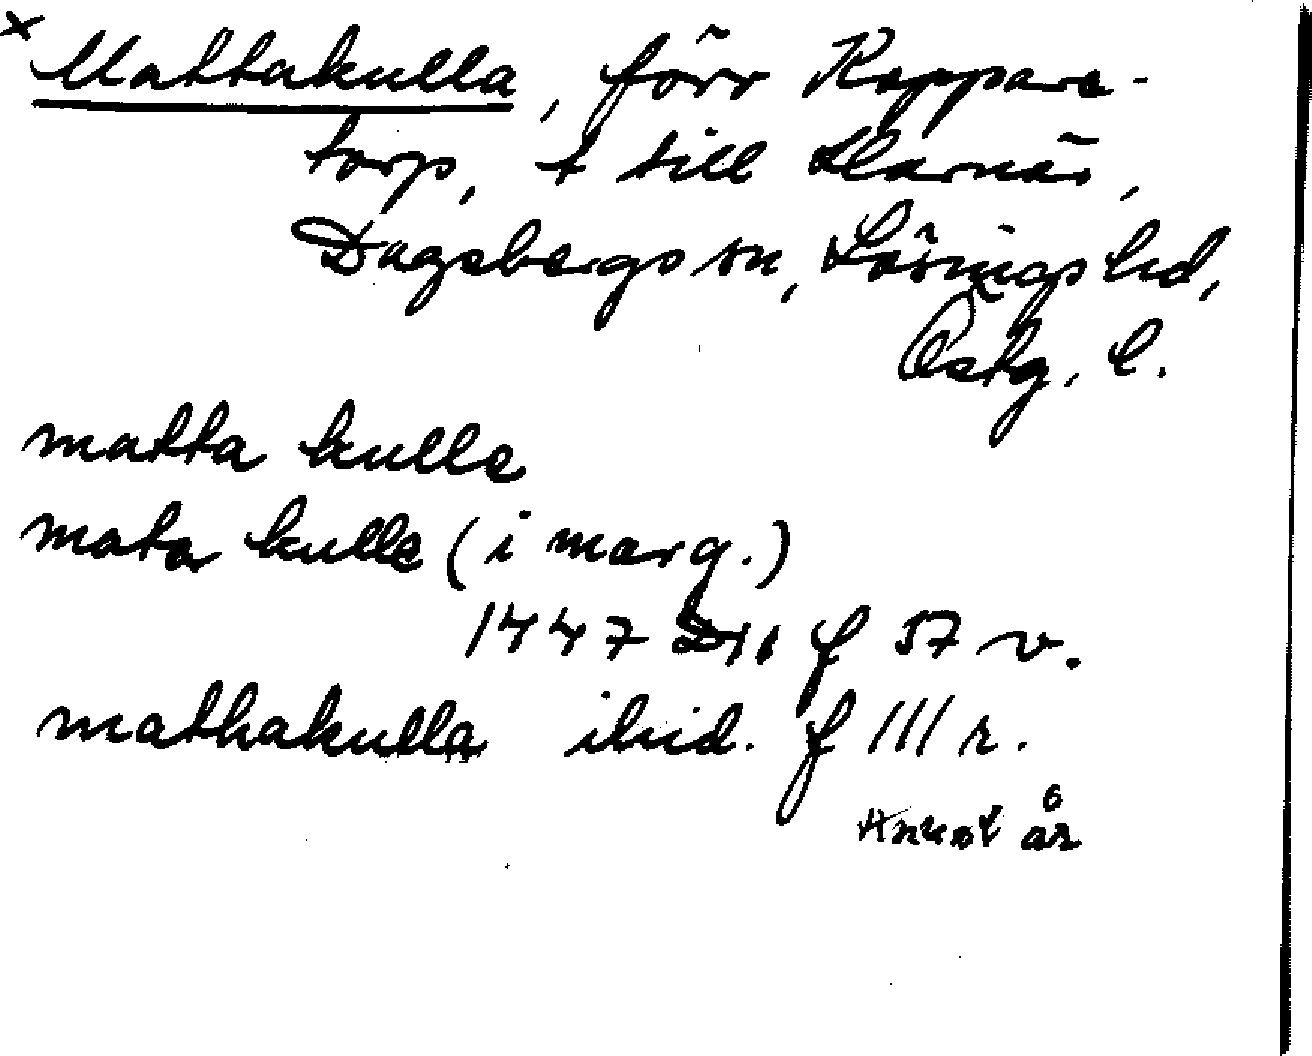 x Mattakulla, förr Koppars-
torp, t till Marnäs,
Dagsbergs sn, Lösings hd,
Östg. l.
matta kulle
mata kulle (i marg.)
1447 D11 f 57 v.
mathakulla ibid. f 111 r.
år